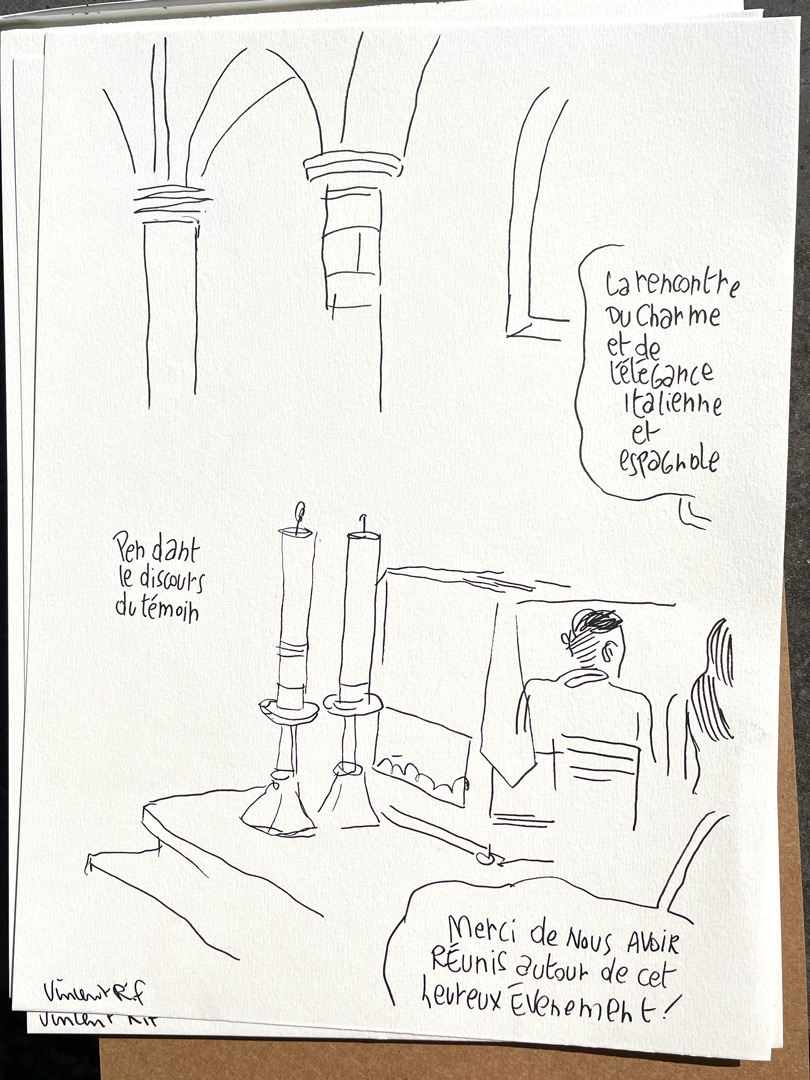 La rencontre
DU Charme
et de
l'élégance
Italienne
et
espagnole
Pendant
le discours
du témoin
Merci de NOUS AVOIR
RÉUNIS autour de cet
heureux Évenement !
Vincent
Vincent